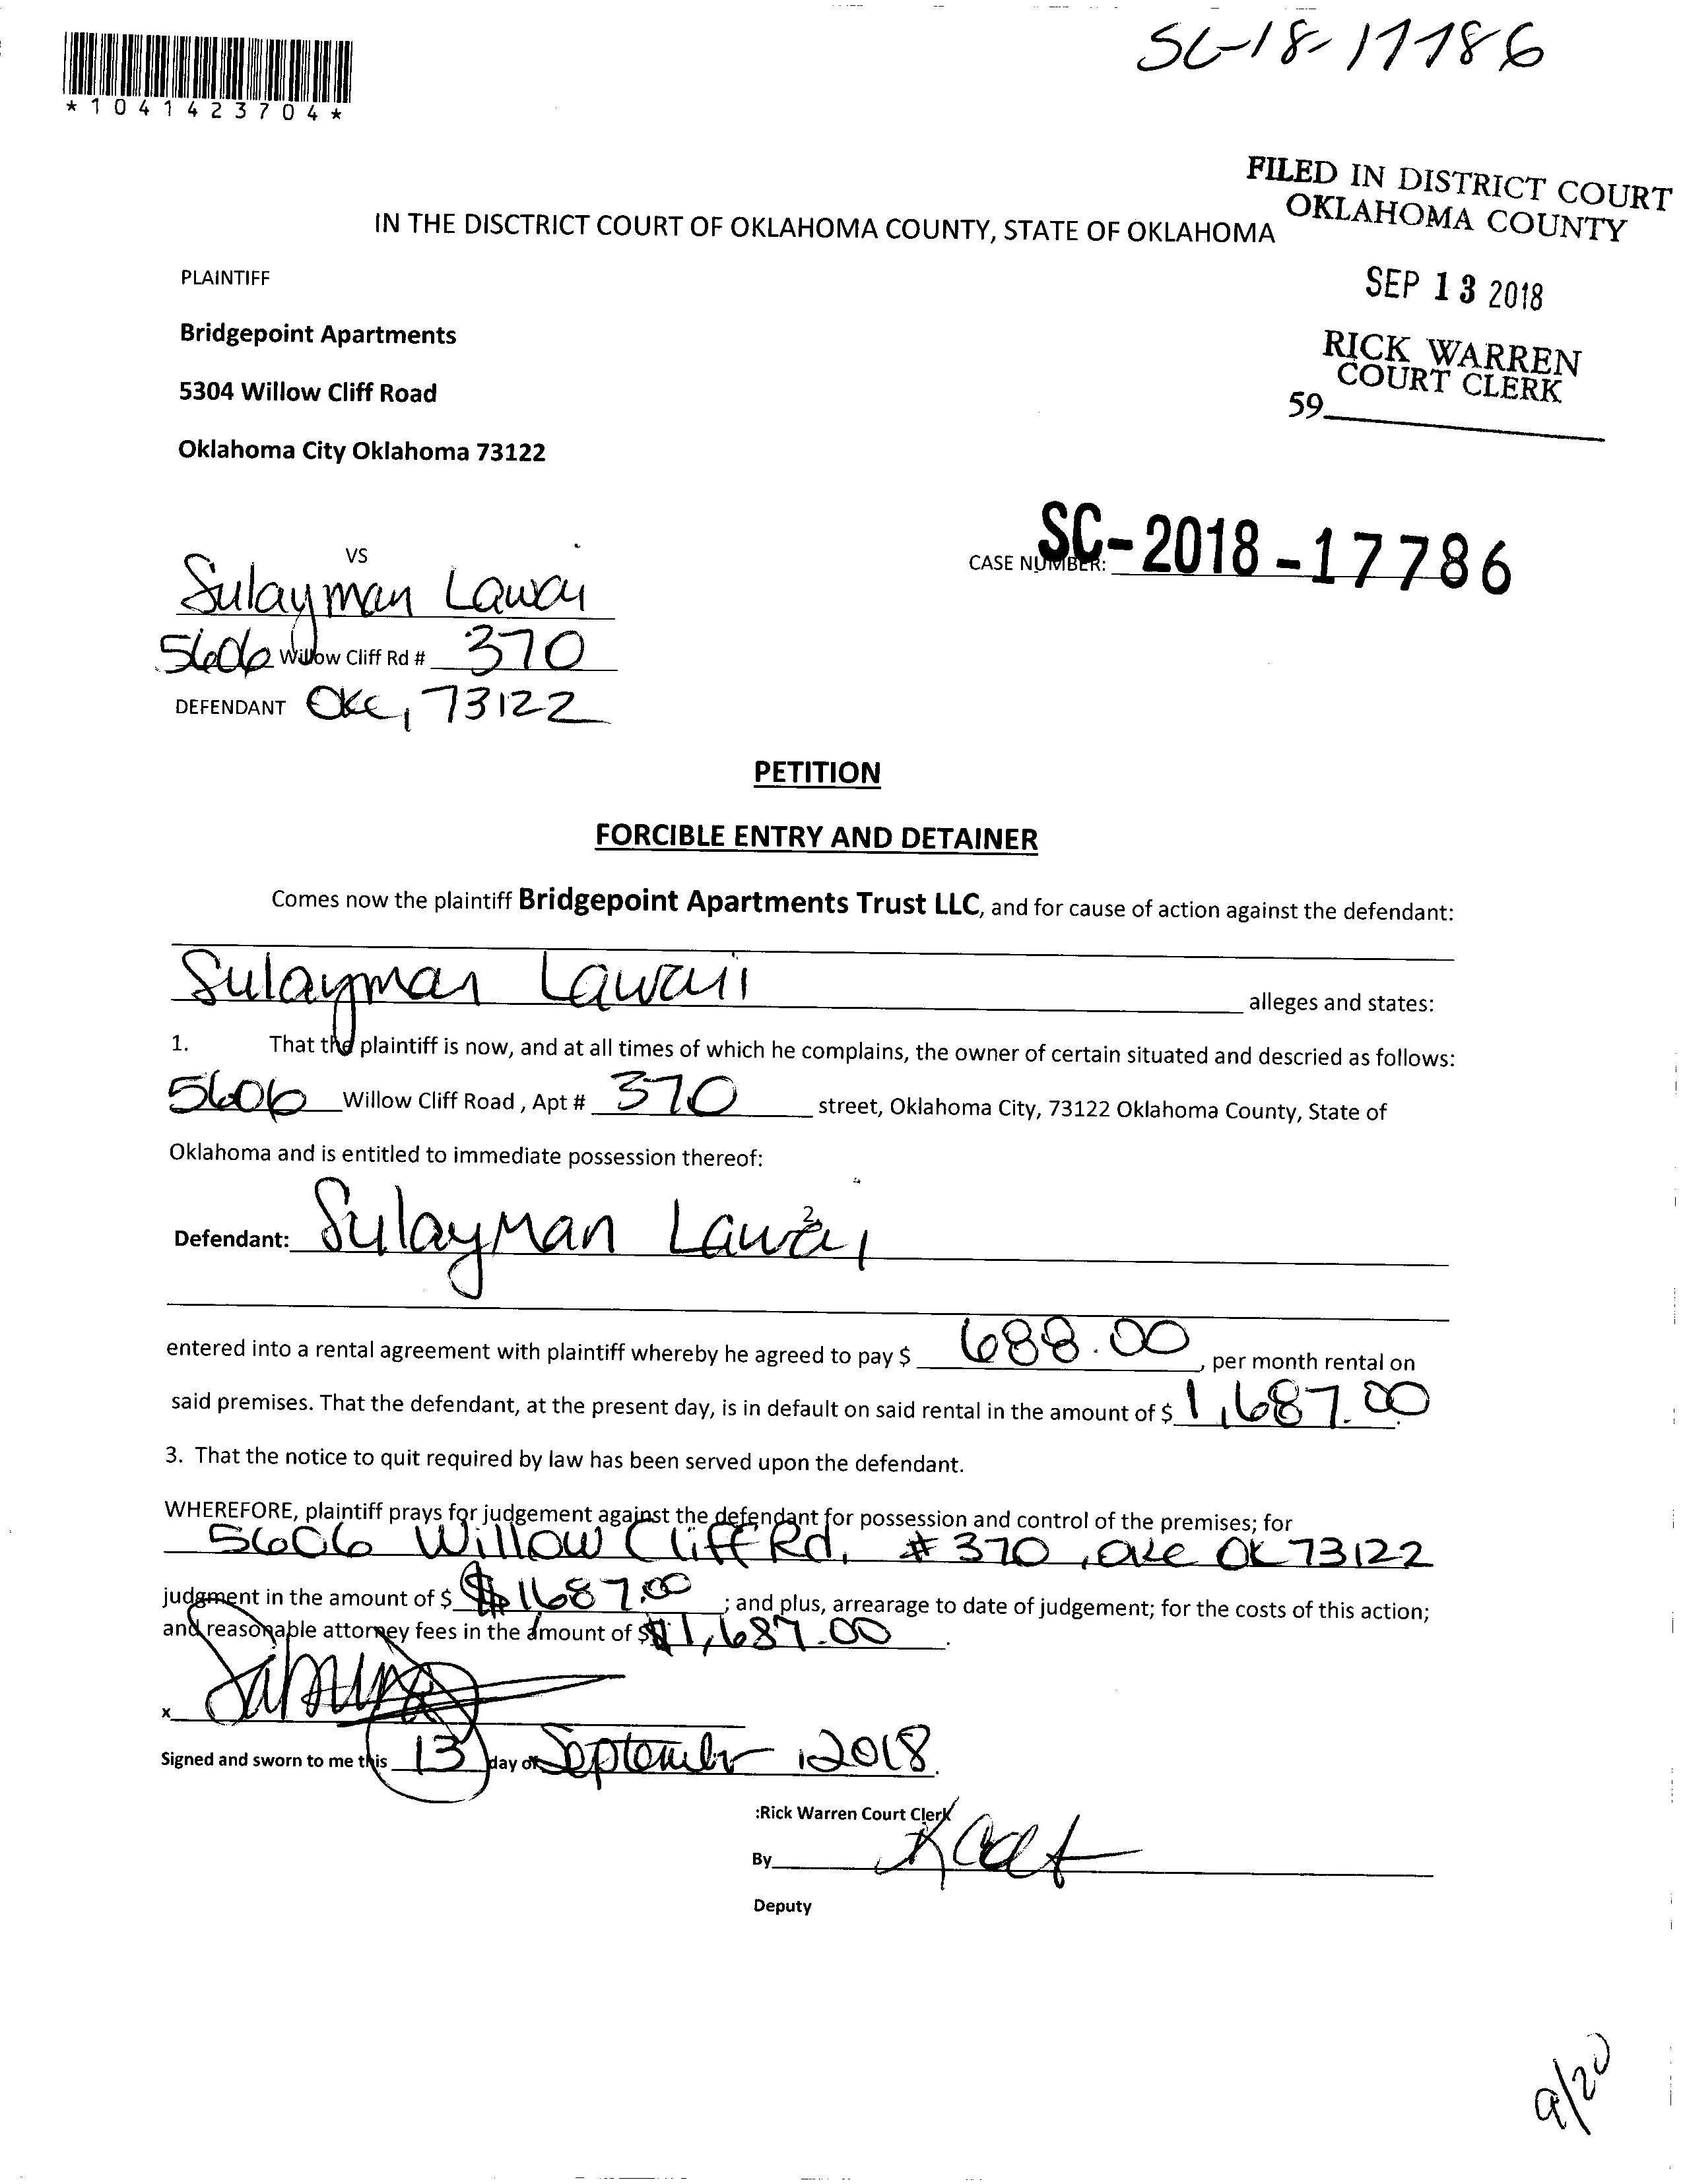 SC-18-17786
*1041423704*
FILED IN DISTRICT COURT
OKLAHOMA COUNTY
IN THE DISCTRICT COURT OF OKLAHOMA COUNTY, STATE OF OKLAHOMA
SEP 13 2018
RICK WARREN
COURT CLERK
59
PLAINTIFF
Bridgepoint Apartments
5304 Willow Cliff Road
Oklahoma City Oklahoma 73122
VS
CASE NUMBER: SC-2018-17786
Sulayman Lawai
5606 Willow Cliff Rd # 370
DEFENDANT OKC, 73122
PETITION
FORCIBLE ENTRY AND DETAINER
Comes now the plaintiff Bridgepoint Apartments Trust LLC, and for cause of action against the defendant:
Sulayman alleges and states:
1. That the plaintiff is now, and at all times of which he complains, the owner of certain situated and descried as follows:
5606 Willow Cliff Road , Apt # 370 street, Oklahoma City, 73122 Oklahoma County, State of
Oklahoma and is entitled to immediate possession thereof:
Defendant: Sulayman Lawai
entered into a rental agreement with plaintiff whereby he agreed to pay $ 688.00, per month rental on
said premises. That the defendant, at the present day, is in default on said rental in the amount of $ 1,687.00.
3. That the notice to quit required by law has been served upon the defendant.
WHEREFORE, plaintiff prays for judgement against the defendant for possession and control of the premises; for
5606 Willow Cliff Rd, # 370, OKC OK 73122
judgment in the amount of $ $1687.00; and plus, arrearage to date of judgement; for the costs of this action;
and reasonable attorney fees in the amount of $ $1,687.00.
x
Signed and sworn to me this 13 day of September, 2018.
:Rick Warren Court Clerk
By
Deputy
9/20